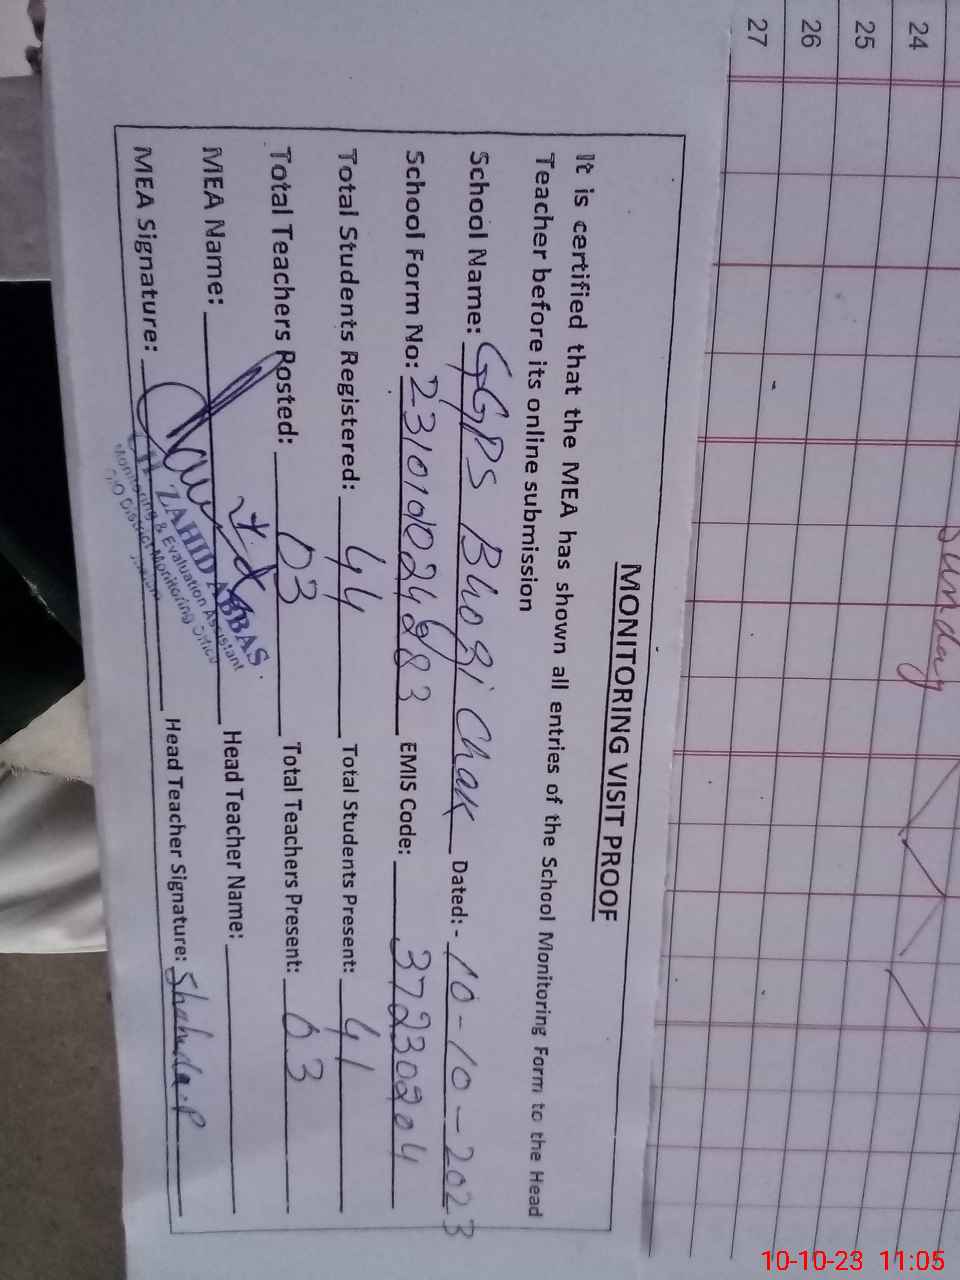 24
25
26
27
Sunday
MONITORING VISIT PROOF
It is certified that the MEA has shown all entries of the School Monitoring Form to the Head
Teacher before its online submission
School Name: GGPS Bhogi Chak Dated:- 10-10-2023
School Form No: EMIS Code: 37230204
Total Students Registered: 44 Total Students Present: 41
Total Teachers Posted: 03 Total Teachers Present: 03
MEA Name: Head Teacher Name:
MEA Signature: Head Teacher Signature: Shahida.P
ZAHID ABBAS
Monitoring & Evaluation Assistant
O/O District Monitoring Officer
10-10-23 11:05